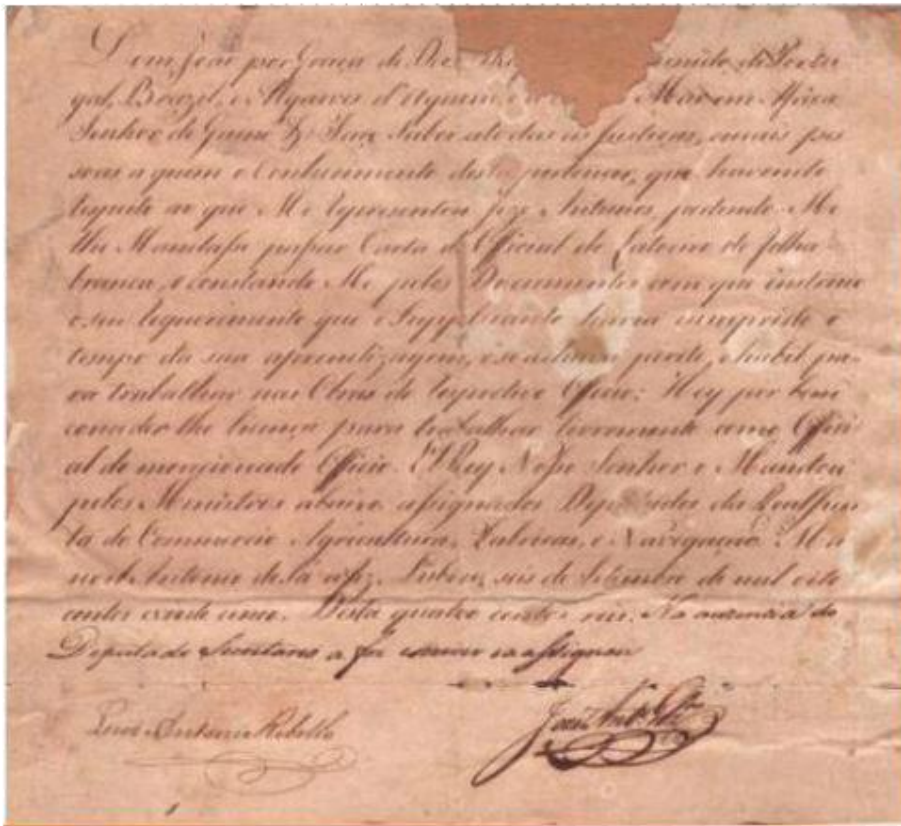 Dom João por Graça de Deos Rey do Reino Unido de Portu
gal, Brazil, e Algarves d'aquem, e Mar em Africa
Senhor de Guiné &. Faço Saber a todas as Justiças, e mais pes
soas a quem o Conhecimento desta pertencer, que havendo
respeito ao que Me representou Jose Antunes, pedindo-Me
lhe Mandasse passar Carta de Official de Latoeiro de folha
branca, e constando-Me pelos Documentos com que instruio
o seu requerimento que o Supplicante havia cumprido o
tempo da sua aprendizagem, e se achava perito, e habil pa
ra trabalhar nas Obras do respectivo Officio: Hey por bem
conceder lhe licença para trabalhar livremente como Offici
al do mencionado Officio. El Rey Nosso Senhor o Mandou
pelos Ministros abaixo assignados Deputados da Real Jun
ta do Commercio Agricultura, Fabricas, e Navegação. Ma
noel Antonio de Sá a fez. Lisboa, seis de Setembro de mil oito
centos e vinte e um. Desta quatro centos reis. No ausencia do
Deputado Secretario a fez escrever e assignou
Antonio Rebello